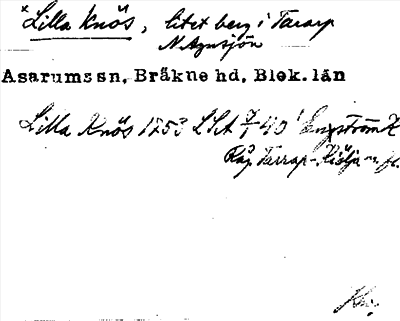 *Lilla Knös, litet berg i Tararp
N Agnsjön
Asarums sn, Bräkne hd, Blek. län
Lilla Knös 1853 LSA Engström K
Råg. Tararp-